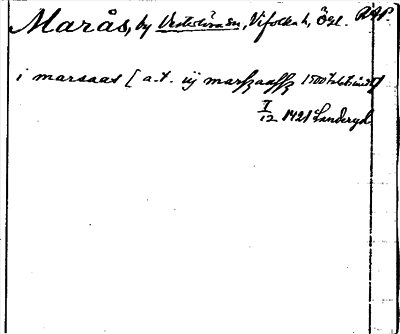 Marås, by Västerlösa sn, Vifolka h, Ögl. RAP.
i marsaas [ a.t. iij marszaassz 1500talets midt]
I/12 1421 Landeryd